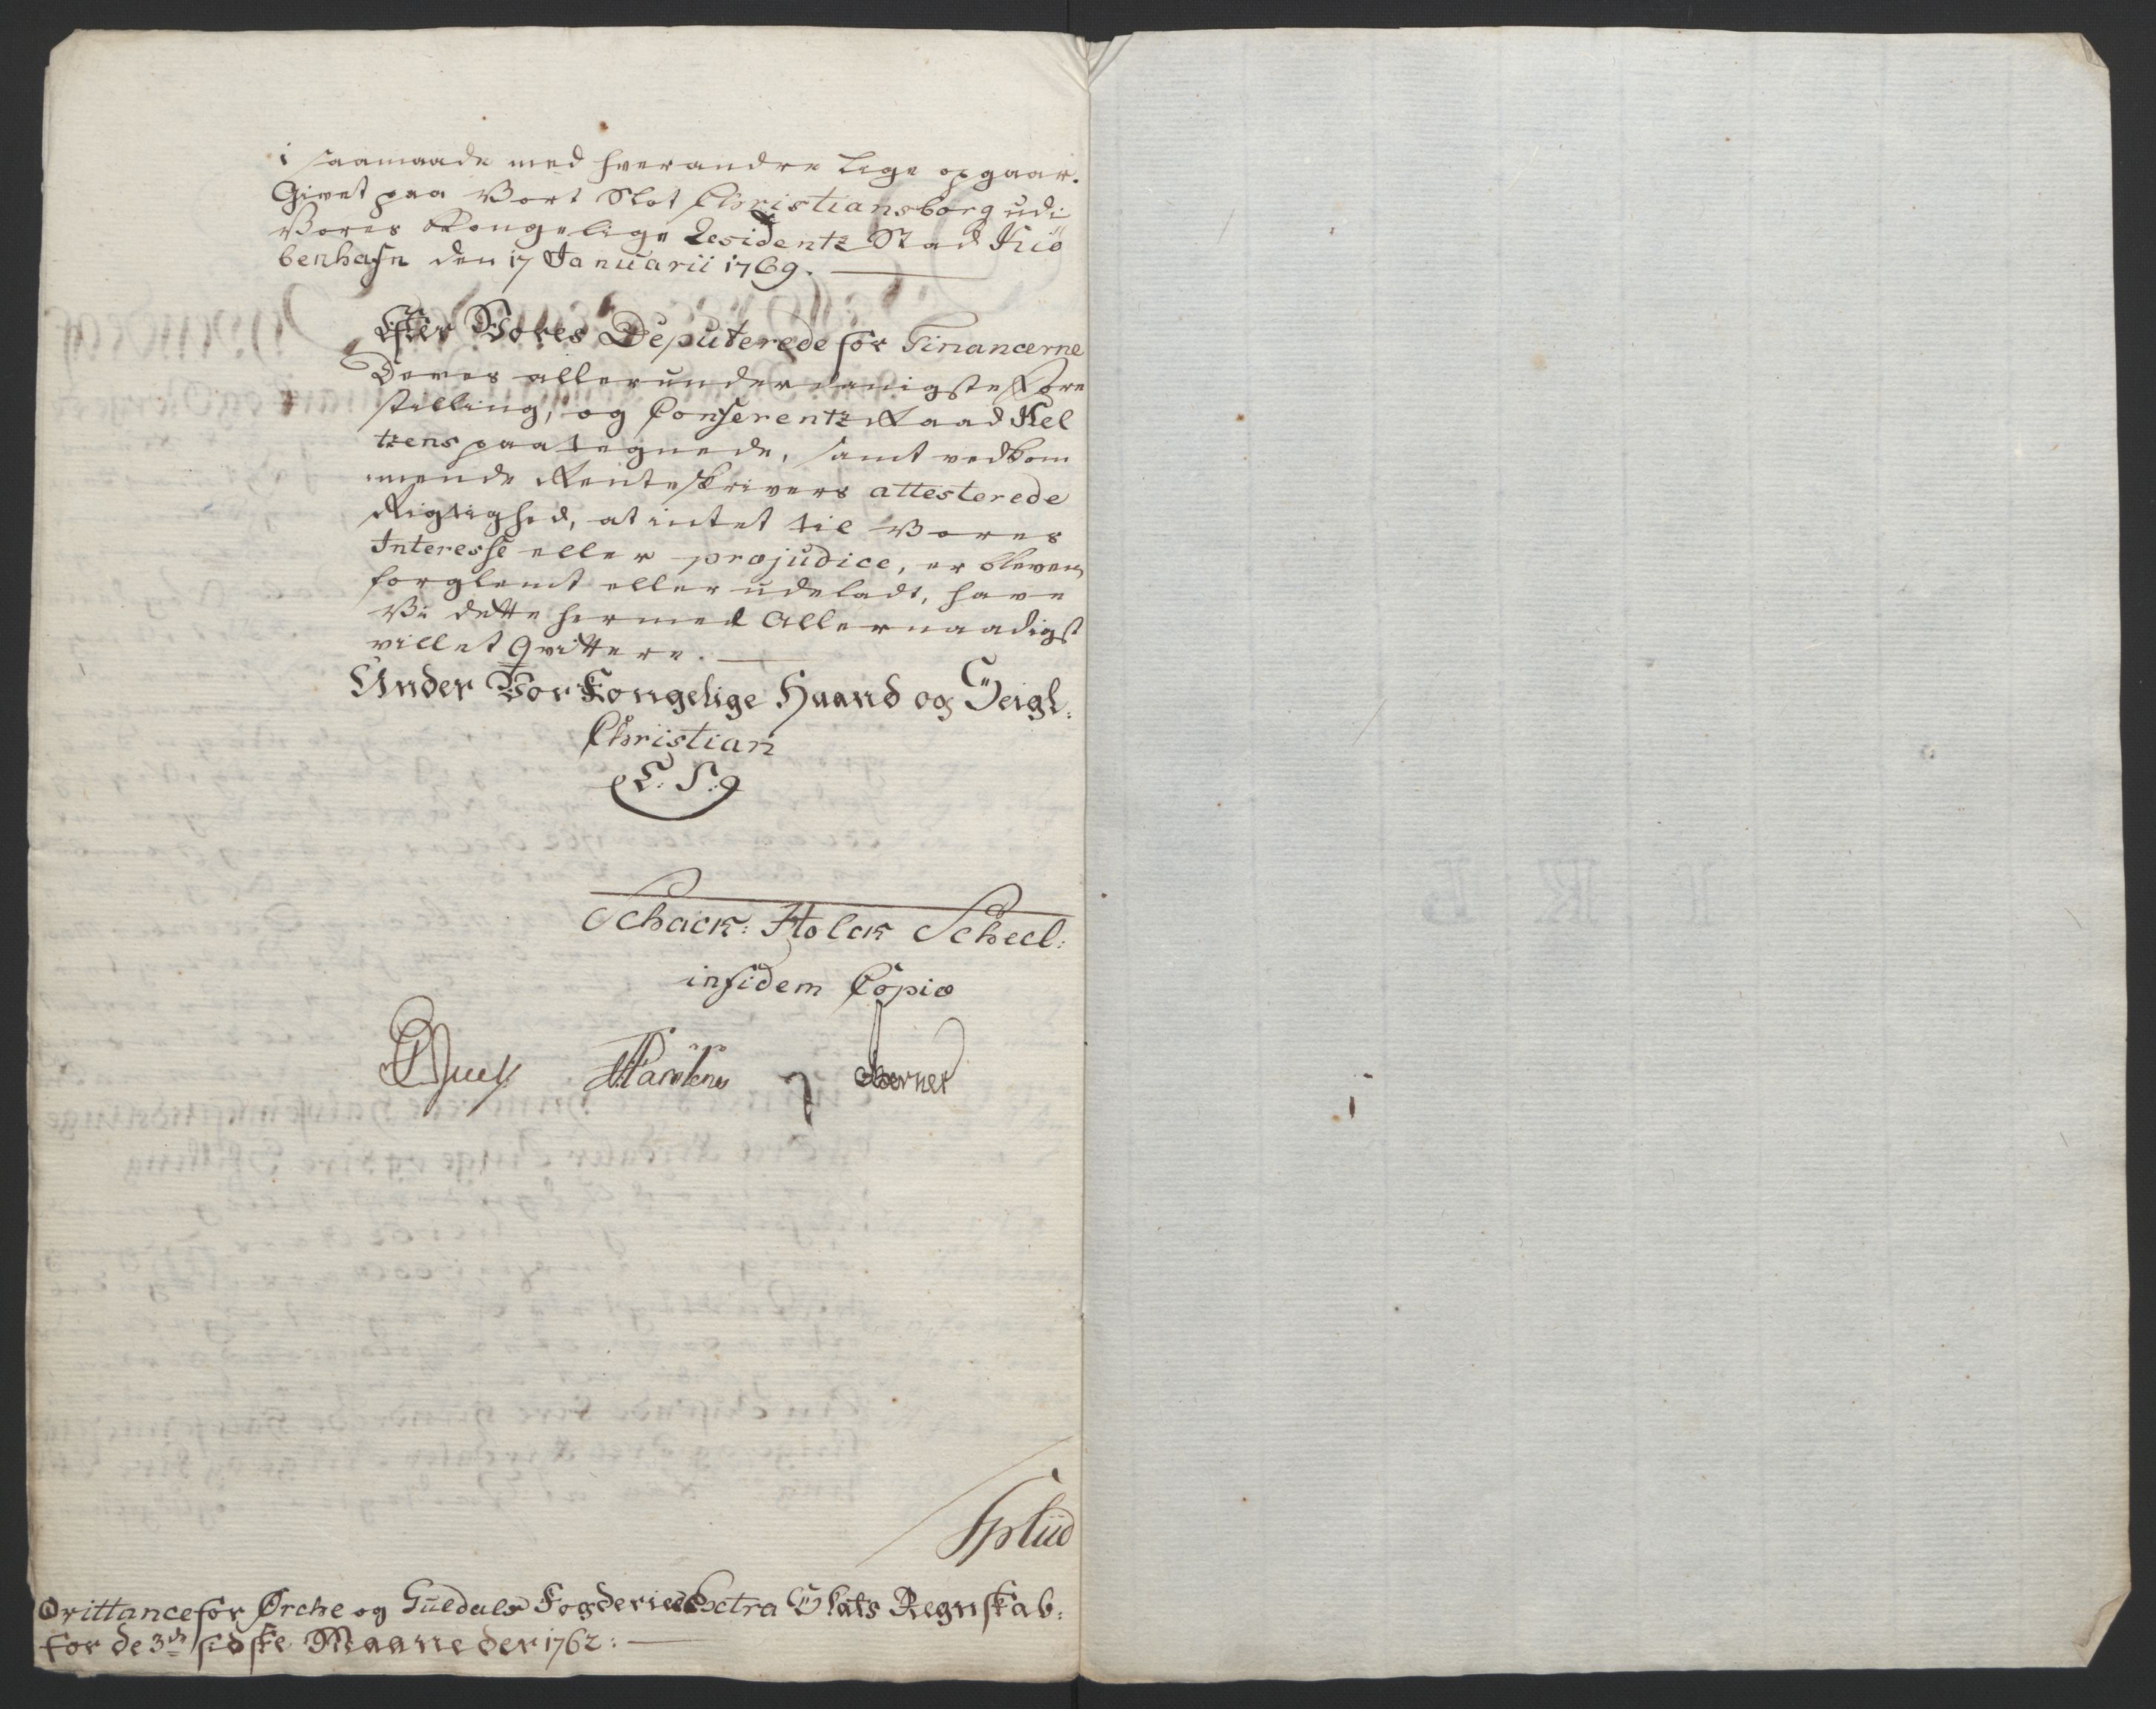 i saamaade med hverandre lige opgaar.
Givet paa Vort Slot Christiansborg udi
Vores Kongelige Residentz Stad Kiö
benhafn den 17 Januarii 1769.
Efter Vores Deputerede for Financerne
Deres allerunderdanigste Fore
stilling, og Conferentz Raad Hel
tzens paategnede, samt vedkom
mende Renteskrivers attesterede
Rigtighed, at intet til Vores
Interesse eller præjudice, er bleven
forglemt eller udeladt, have
Vi dette hermed Allernaadigst
villet Qvittere.
Under Vor Kongelige Haand og Seigl:
Christian
L: S:
Schack: Holck Scheel:
in fidem Copiæ
Berner
Qvittance for Ørche og Guldals Fogderies Extra Skats Regnskab:
for de 3de sidste Maaneder 1762: